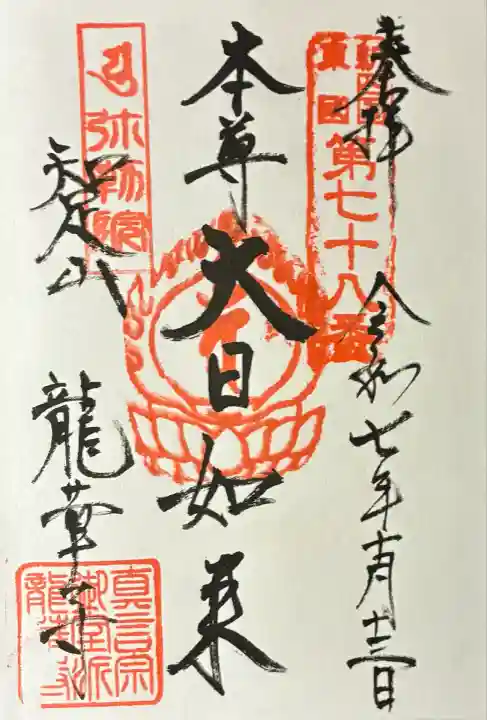 奉拝
令和七年十一月十三日
第七十八番
本尊
大日如来
弥勒院
知足山
龍華寺
真言宗
御室派
龍華寺